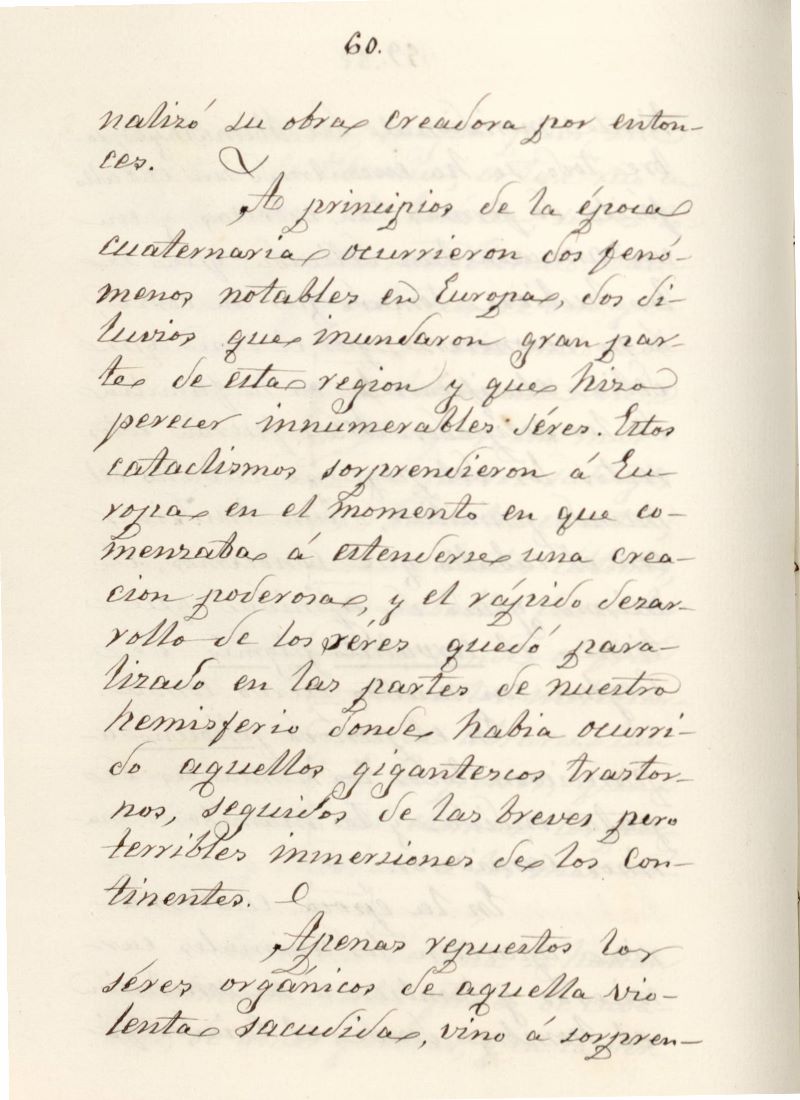 60.
nalizó su obra creadora por enton-
ces.
A principios de la época
cuaternaria ocurrieron dos fenó-
menos notables en Europa, dos di-
luvios que inundaron gran par-
te de esta region y que hizo
perecer innumerables séres. Estos
cataclismos sorprendieron á Eu-
ropa en el momento en que co-
menzaba á estenderse una crea-
cion poderosa, y el rápido dezar-
rollo de los séres quedó para-
lizado en las partes de nuestro
hemisferio donde habia ocurri-
do aquellos gigantescos trastor-
nos, seguidos de las breves pero
terribles inmersiones de los con-
tinentes.
Apenas repuestos los
séres orgánicos de aquella vio-
lenta sacudida, vino á sorpren-